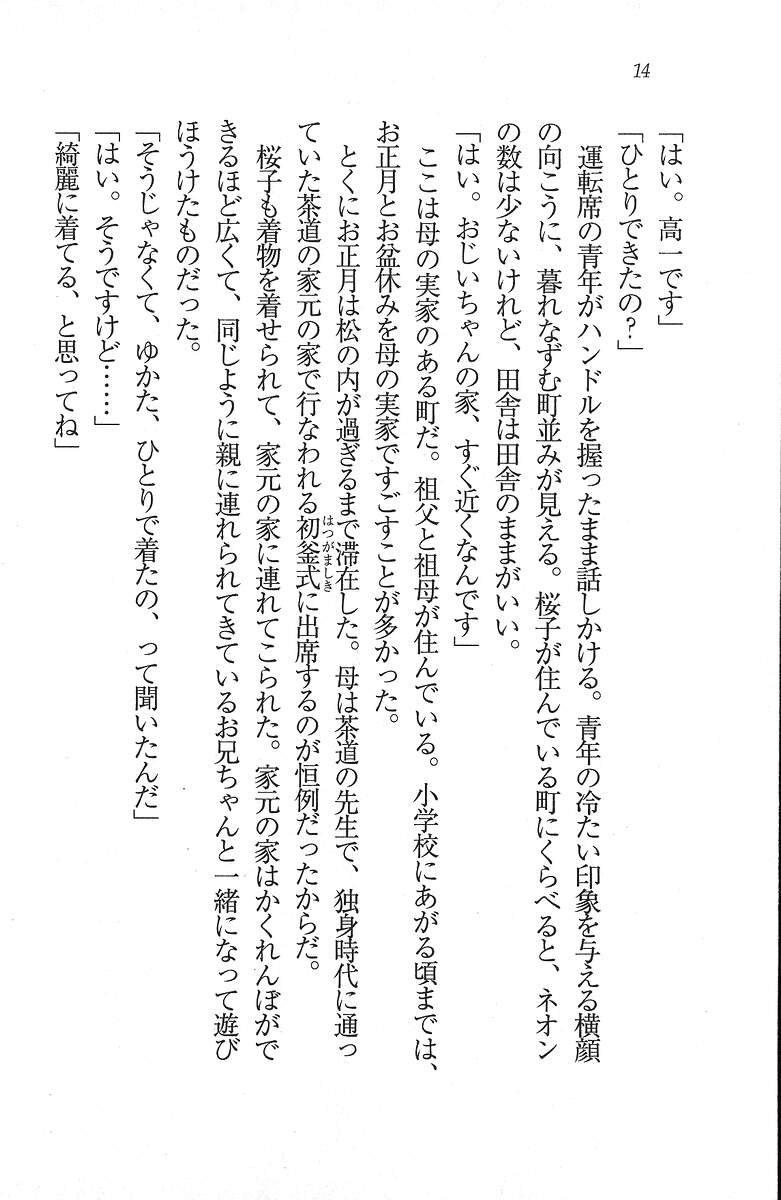 14
「はい。高一です」
「ひとりできたの?」
運転席の青年がハンドルを握ったまま話しかける。青年の冷たい印象を与える横顔
の向こうに、暮れなずむ町並みが見える。桜子が住んでいる町にくらべると、ネオン
の数は少ないけれど、田舎は田舎のままがいい。
「はい。おじいちゃんの家、すぐ近くなんです」
ここは母の実家のある町だ。祖父と祖母が住んでいる。小学校にあがる頃までは、
お正月とお盆休みを母の実家ですごすことが多かった。
とくにお正月は松の内が過ぎるまで滞在した。母は茶道の先生で、独身時代に通っ
ていた茶道の家元の家で行なわれる初釜式に出席するのが恒例だったからだ。
はつがましき
桜子も着物を着せられて、家元の家に連れてこられた。家元の家はかくれんぼがで
きるほど広くて、同じように親に連れられてきているお兄ちゃんと一緒になって遊び
ほうけたものだった。
「そうじゃなくて、ゆかた、ひとりで着たの、って聞いたんだ」
「はい。そうですけど……」
「綺麗に着てる、と思ってね」